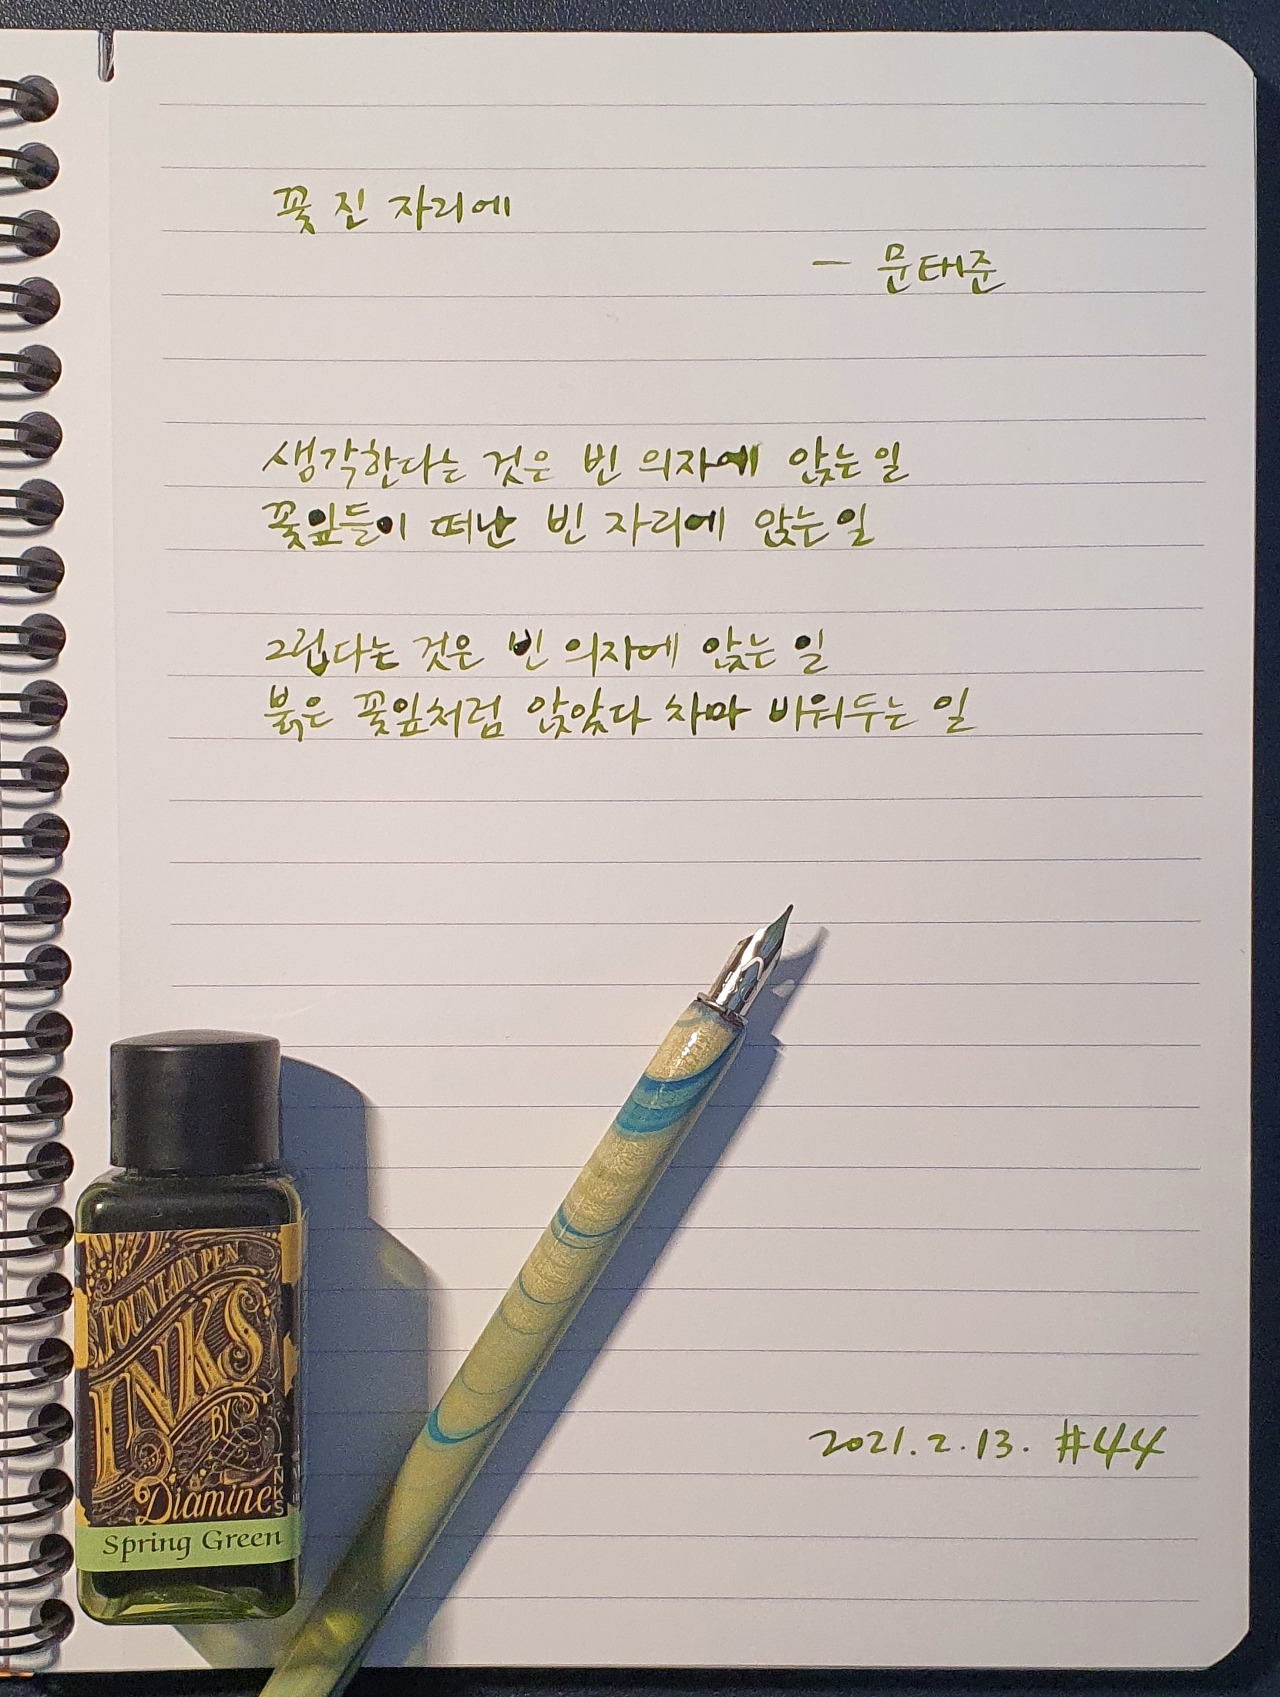 꽃 진 자리에
- 문태준
생각한다는 것은 빈 의자에 앉는 일
꽃잎들이 떠난 빈 자리에 앉는 일
그립다는 것은 빈 의자에 앉는 일
붉은 꽃잎처럼 앉았다 차마 비워두는 일
2021. 2. 13. #44
FOUNTAIN PEN
INKS
BY
Diamine
INKS
Spring Green